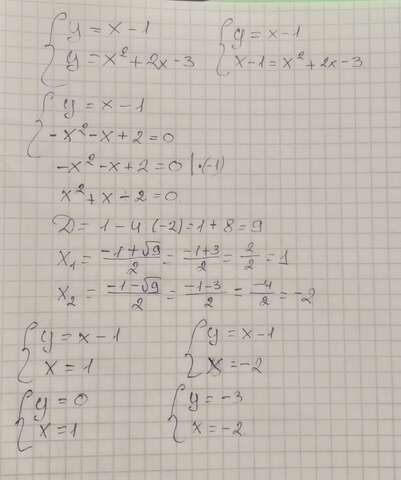 { y = x - 1    { y = x - 1
{ y = x² + 2x - 3    { x - 1 = x² + 2x - 3
{ y = x - 1
{ -x² - x + 2 = 0
-x² - x + 2 = 0 | ·(-1)
x² + x - 2 = 0
D = 1 - 4·(-2) = 1 + 8 = 9
x₁ = (-1 + √9)/2 = (-1+3)/2 = 2/2 = 1
x₂ = (-1 - √9)/2 = (-1-3)/2 = -4/2 = -2
{ y = x - 1    { y = x - 1
{ x = 1    { x = -2
{ y = 0    { y = -3
{ x = 1    { x = -2